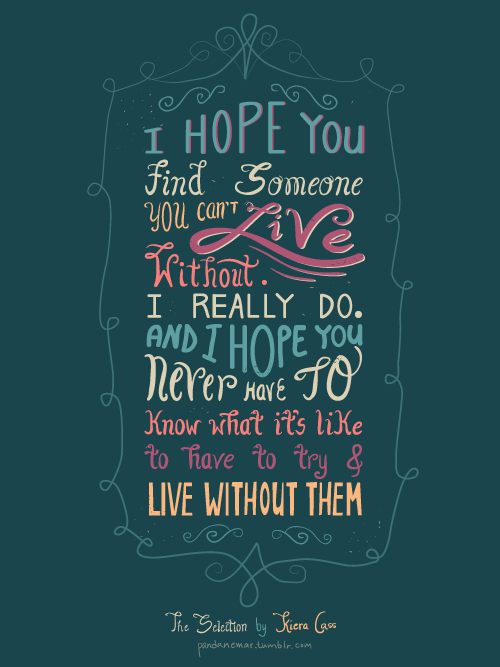 I HOPE YOU
Find Someone
YOU CAN'T LiVe
Without.
I REALLY DO.
AND I HOPE YOU
Never HAVE TO
Know what it's like
to have to try &
LIVE WITHOUT THEM
The Selection by Kiera Cass
pandanemar.tumblr.com